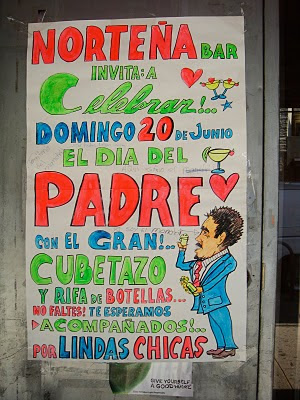 NORTEÑA BAR
INVITA: A
Celebrar!..
DOMINGO 20 DE JUNIO
EL DIA DEL
PADRE
CON EL GRAN!..
CUBETAZO
Y RIFA DE BOTELLAS...
NO FALTES! TE ESPERAMOS
ACOMPAÑADOS!..
POR LINDAS CHICAS
GIVE YOURSELF
A GOOD